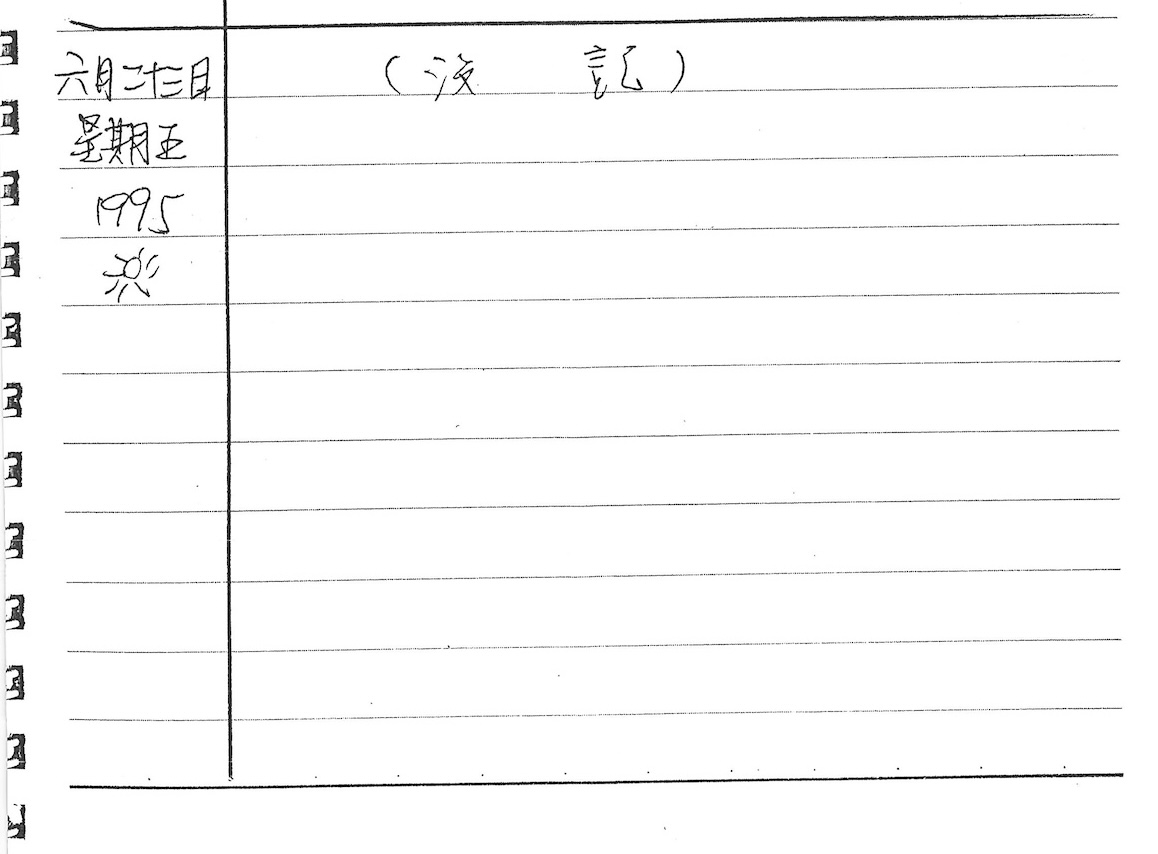 六月二十三日 (没 記)
星期五
1995